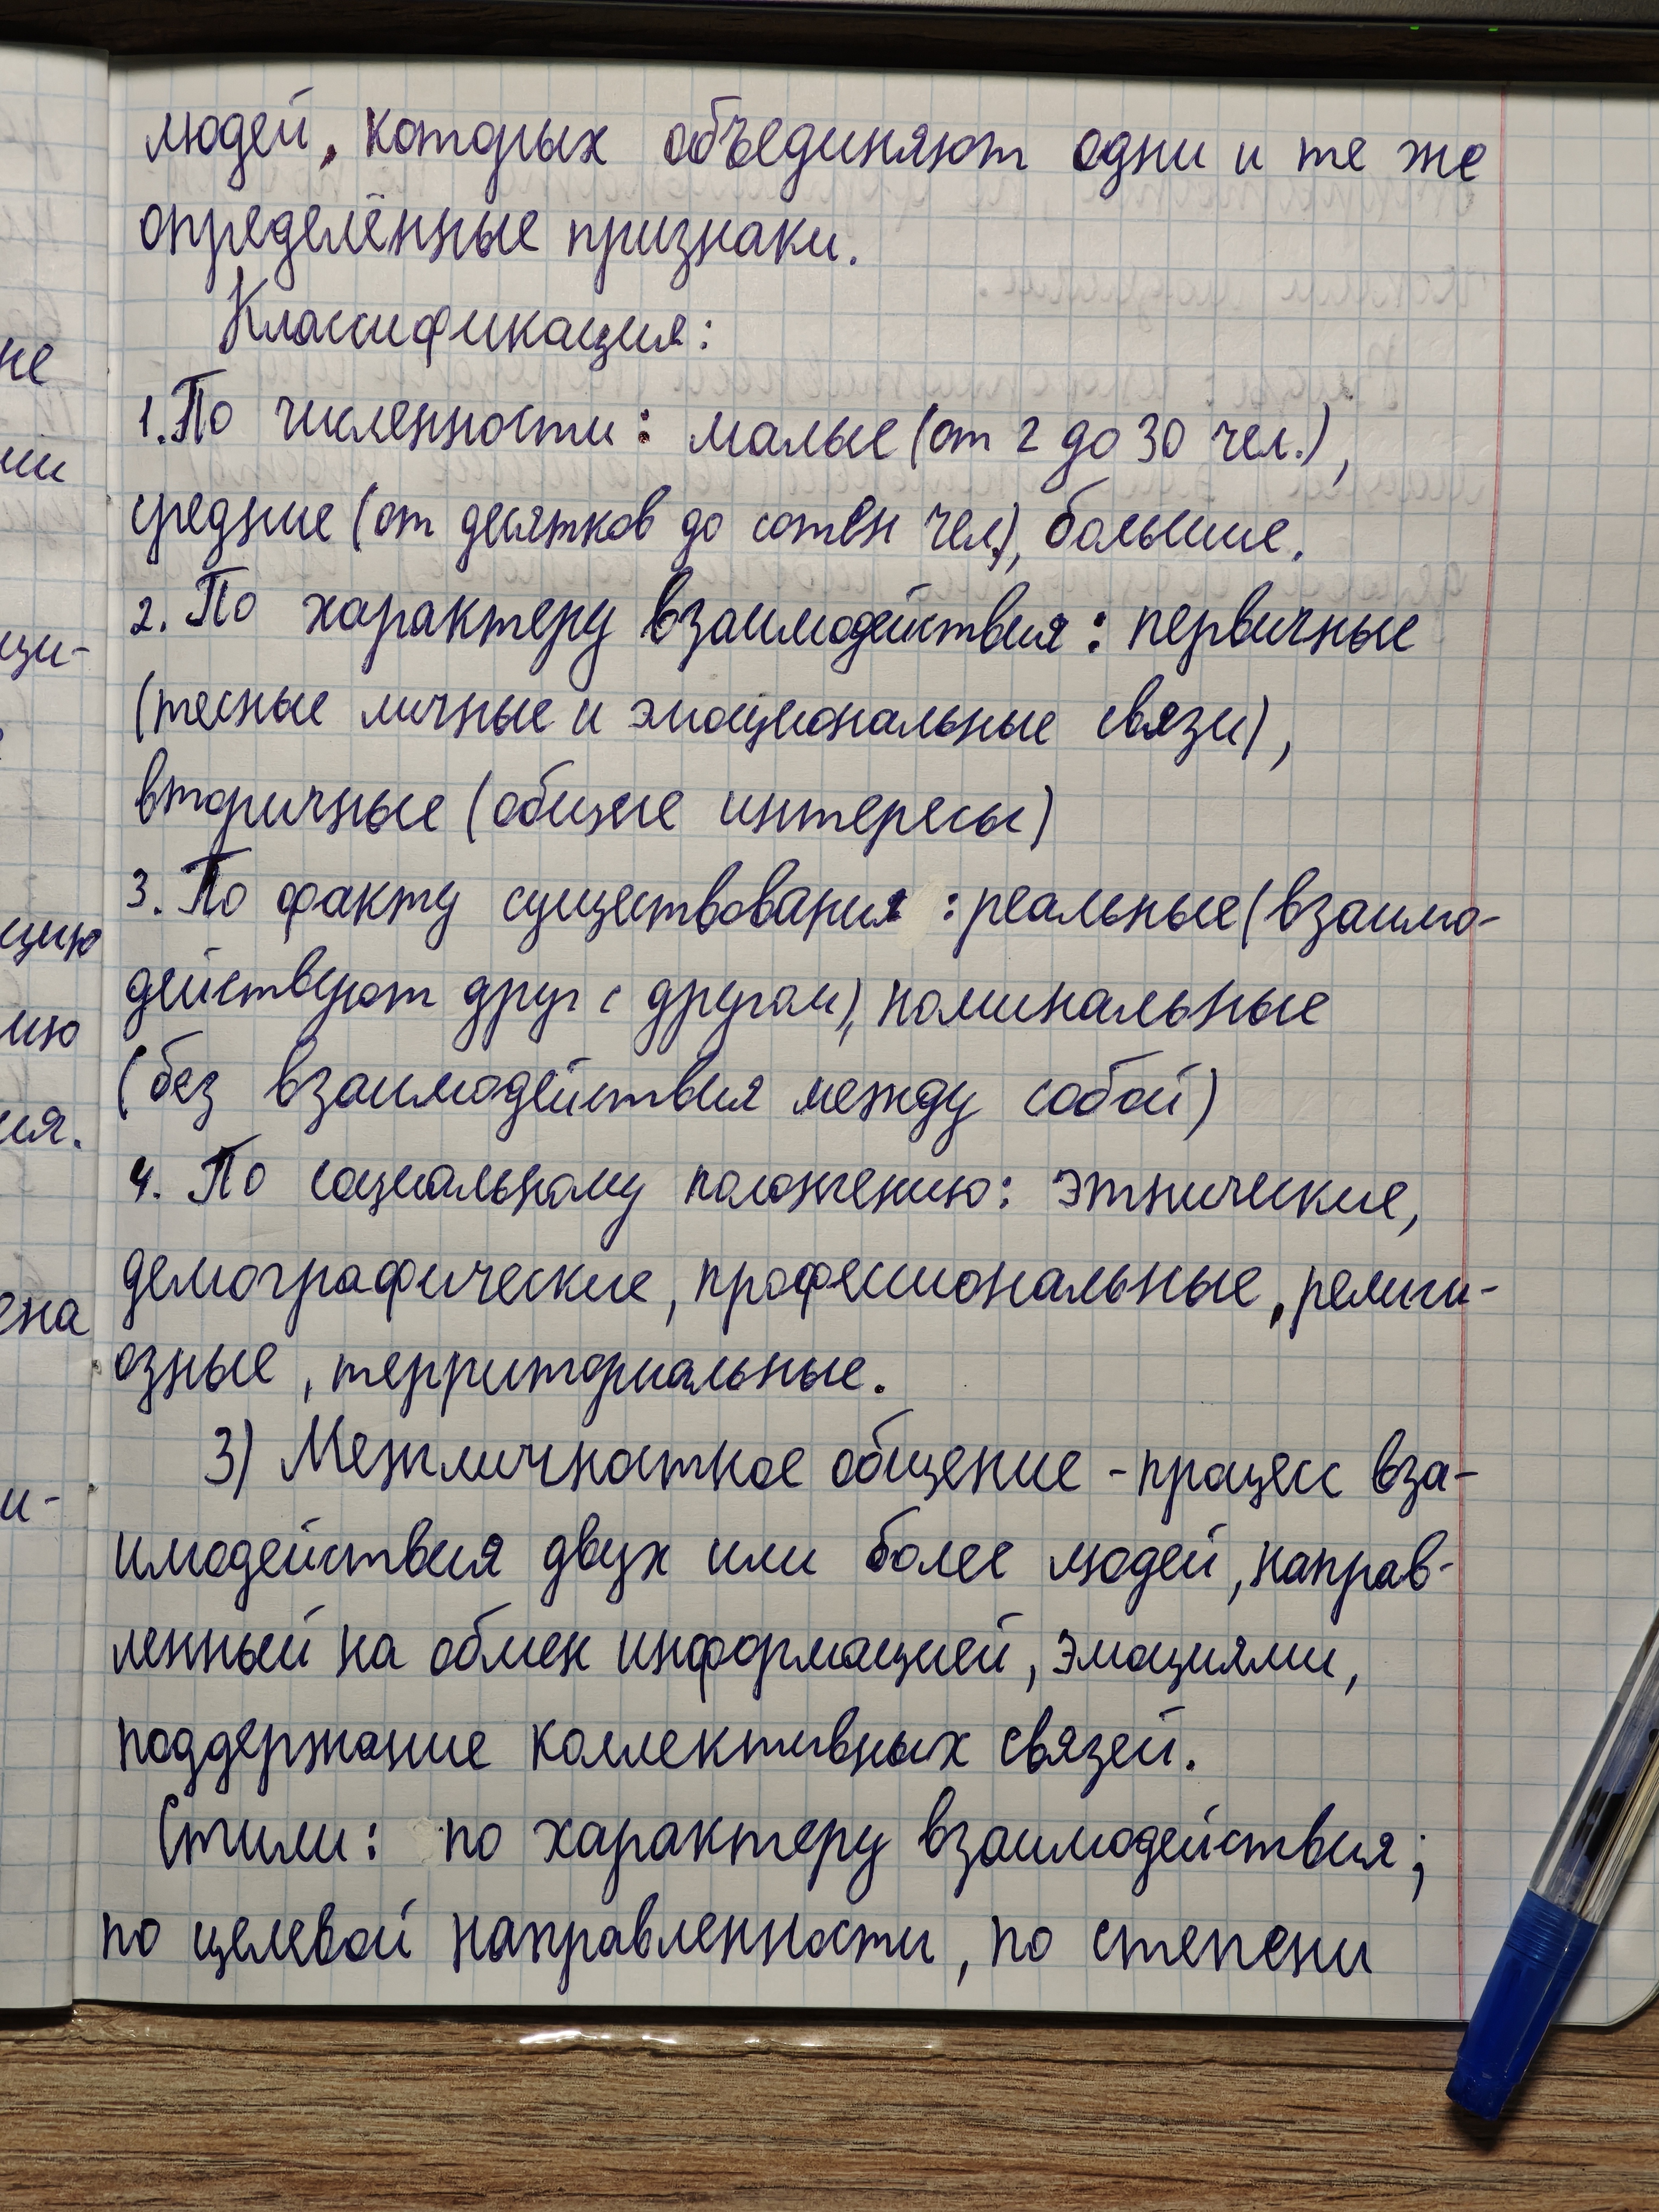 людей, которых объединяют одни и те же
определённые признаки.
Классификация:
1. По численности: малые (от 2 до 30 чел.),
средние (от десятков до сотен чел.), большие.
2. По характеру взаимодействия: первичные
(тесные личные и эмоциональные связи),
вторичные (общие интересы)
3. По факту существования: реальные (взаимо-
действуют друг с другом), номинальные
(без взаимодействия между собой)
4. По социальному положению: этнические,
демографические, профессиональные, религи-
озные, территориальные.
3) Межличностное общение - процесс вза-
имодействия двух или более людей, направ-
ленный на обмен информацией, эмоциями,
поддержание коллективных связей.
Стили: по характеру взаимодействия;
по целевой направленности, по степени